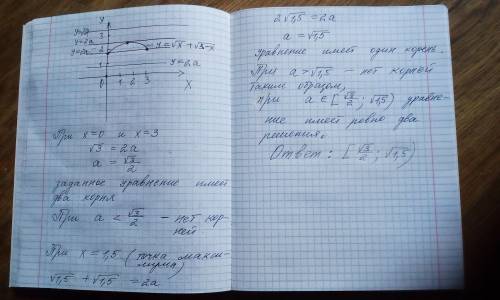 y
y=2a
3
y=2a
2
y=√x + √3-x
y=2a
1
y=2a
0 1 2 3
x
При x=0 и x=3
√3 = 2a
a = √3/2
заданное уравнение имеет
два корня
При a < √3/2 – нет кор-
ней
При x = 1,5 (точка макси-
мума)
√1,5 + √1,5 = 2a
2√1,5 = 2a
a = √1,5
Уравнение имеет один корень.
При a > √1,5 – нет корней
Таким образом,
при a ∈ [√3/2 ; √1,5) уравне-
ние имеет ровно два
решения.
Ответ: [√3/2 ; √1,5)